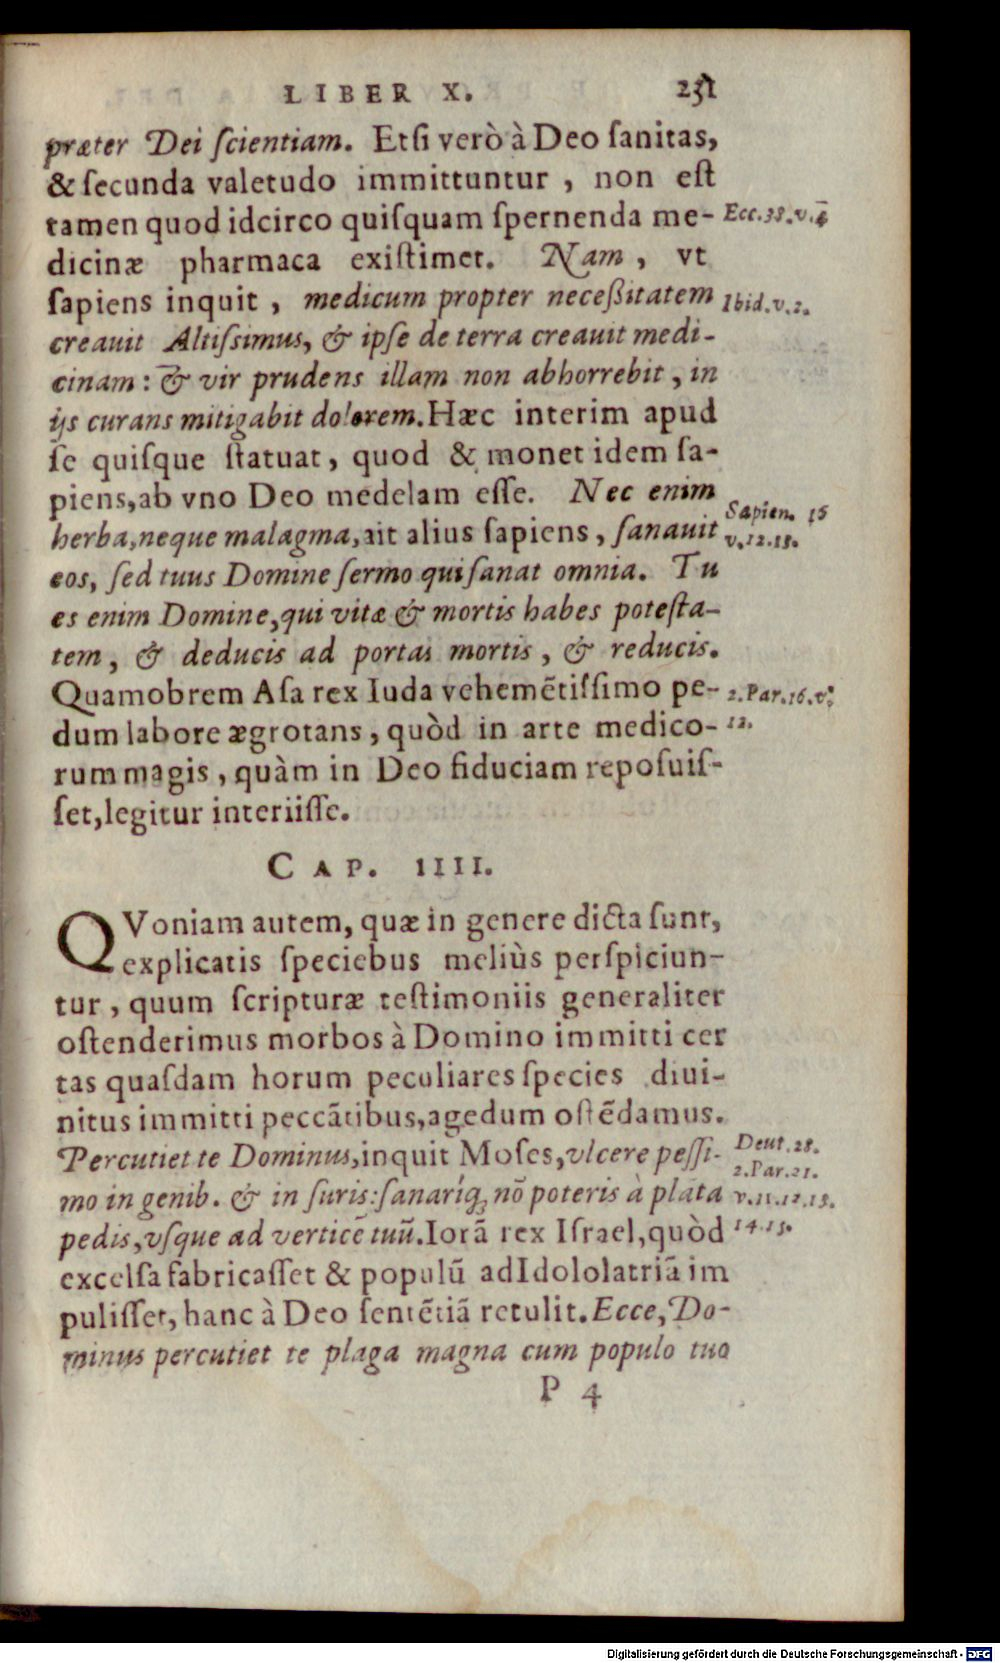 LIBER X. 231
præter Dei ſcientiam. Etſi verò à Deo ſanitas,
& ſecunda valetudo immittuntur, non eſt
tamen quod idcirco quiſquam ſpernenda me-
Ecc. 38. v. 4
dicinæ pharmaca exiſtimet. Nam, vt
ſapiens inquit, medicum propter neceßitatem
Ibid. v. 2.
creauit Altiſsimus, & ipſe de terra creauit medi-
cinam: & vir prudens illam non abhorrebit, in
ijs curans mitigabit dolorem. Hæc interim apud
ſe quiſque ſtatuat, quod & monet idem ſa-
piens, ab vno Deo medelam eſſe. Nec enim
herba, neque malagma, ait alius ſapiens, ſanauit
Sapien. 16
v. 12. 13.
eos, ſed tuus Domine ſermo qui ſanat omnia. Tu
es enim Domine, qui vitæ & mortis habes poteſta-
tem, & deducis ad portas mortis, & reducis.
Quamobrem Aſa rex Iuda vehemētiſſimo pe-
2. Par. 16. v.
12.
dum labore ægrotans, quòd in arte medico-
rum magis, quàm in Deo fiduciam repoſuiſ-
ſet, legitur interiiſſe.
CAP. IIII.
QVoniam autem, quæ in genere dicta ſunt,
explicatis ſpeciebus meliùs perſpiciun-
tur, quum ſcripturæ teſtimoniis generaliter
oſtenderimus morbos à Domino immitti cer
tas quaſdam horum peculiares ſpecies diui-
nitus immitti peccātibus, agedum oſtēdamus.
Percutiet te Dominus, inquit Moſes, vlcere peſſi-
Deut. 28.
2. Par. 21.
v. 11. 12. 13.
14. 15.
mo in genib. & in ſuris: ſanariq́; nō poteris à plāta
pedis, vſque ad verticē tuū. Iorā rex Iſrael, quòd
excelſa fabricaſſet & populū ad Idololatriā im
puliſſet, hanc à Deo ſentētiā retulit. Ecce, Do-
minus percutiet te plaga magna cum populo tuo
P 4
Digitalisierung gefördert durch die Deutsche Forschungsgemeinschaft - DFG